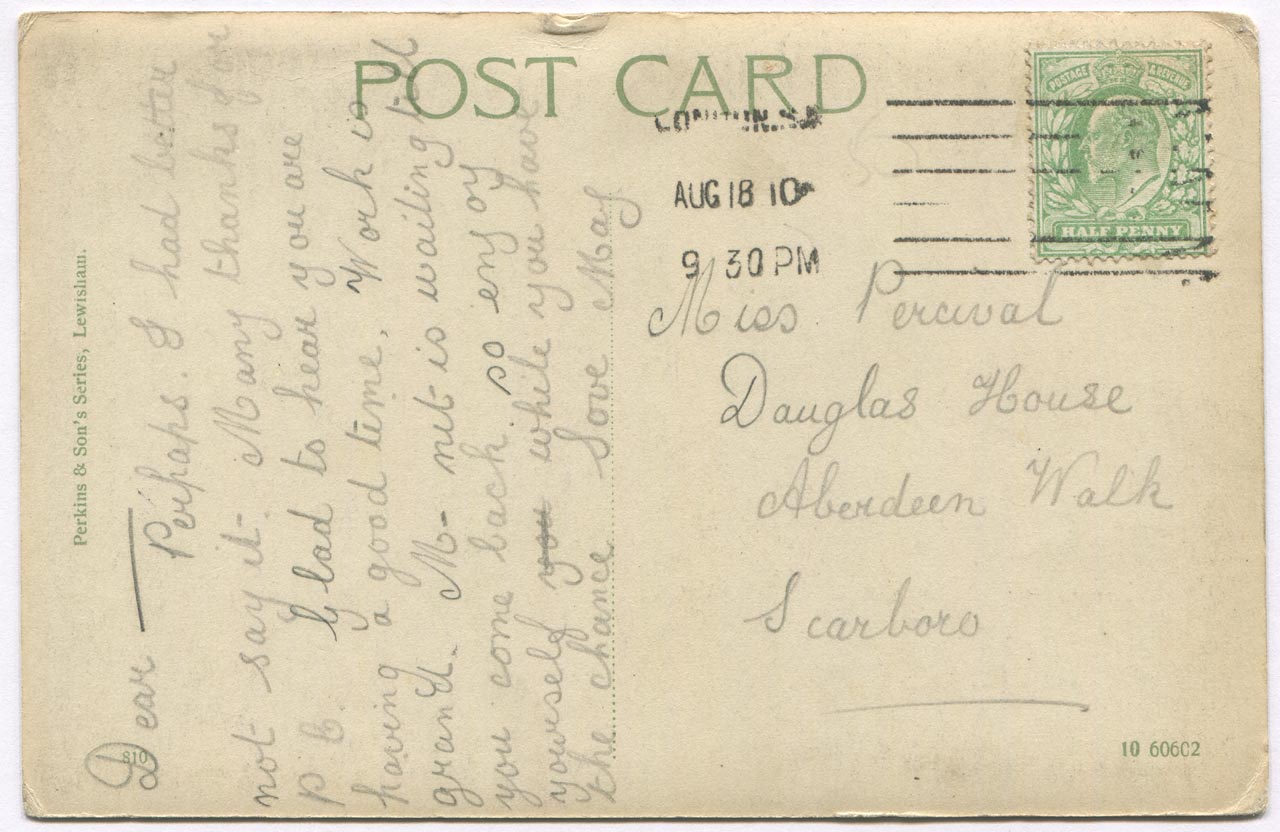 POST CARD
LONDON. S.E
AUG 18 10
9 30 PM
POSTAGE & REVENUE
HALF PENNY
Miss Percival
Dauglas House
Aberdeen Walk
Scarboro
10 60602
Perkins & Son's Series, Lewisham.
810
Dear — Perhaps. I had better
not say it - Many thanks for
P C. Glad to hear you are
having a good time. Work is
grand. M - nit is wailing till
you come back. so enjoy
yourself you while you have
the chance Love May